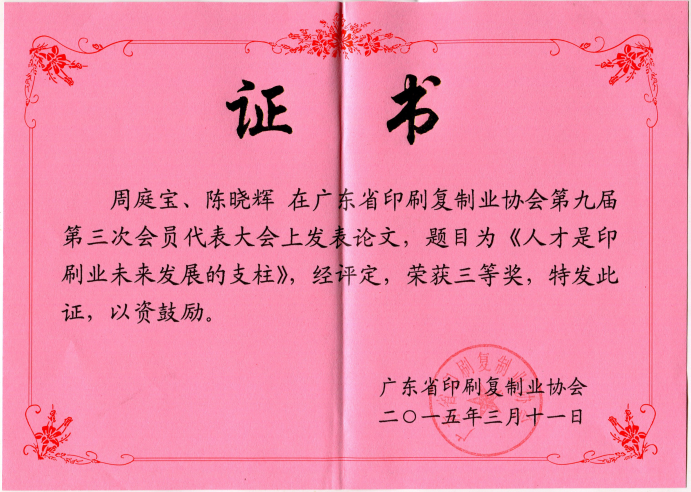 证 书
周庭宝、陈晓辉 在广东省印刷复制业协会第九届
第三次会员代表大会上发表论文，题目为《人才是印
刷业未来发展的支柱》，经评定，荣获三等奖，特发此
证，以资鼓励。
广东省印刷复制业协会
广东省印刷复制业协会
二〇一五年三月十一日